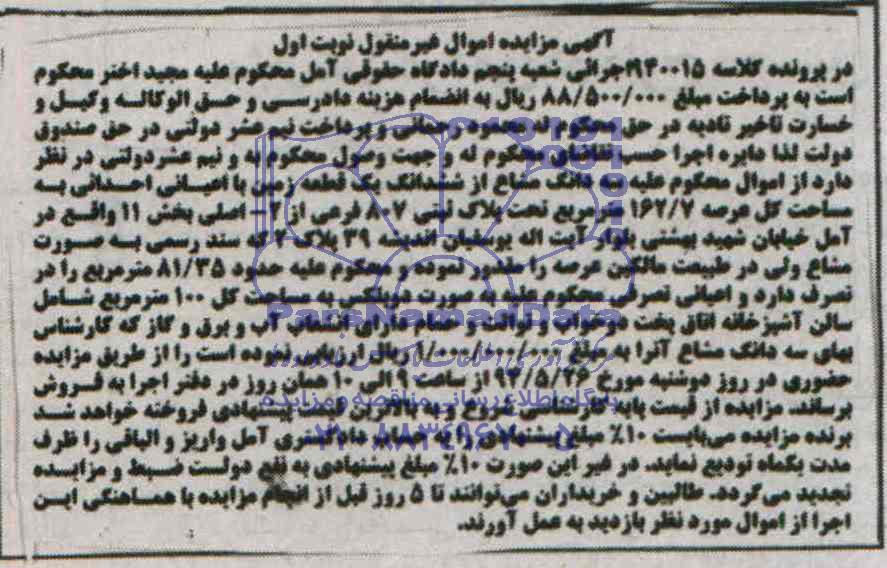 آگهی مزایده اموال غیر منقول نوبت اول
در پرونده کلاسه ۹۴۰۰۱۵اجرائی شعبه پنجم دادگاه حقوقی آمل محکوم علیه مجید اختر محکوم
است به پرداخت مبلغ ۸۸/۵۰۰/۰۰۰ ریال به انضمام هزینه دادرسی و حق الوکاله وکیل و
خسارت تاخیر تادیه در حق محکوم له محمود رحمانی و پرداخت نیم عشر دولتی در حق صندوق
دولت لذا دایره اجرا حسب تقاضای محکوم له و جهت وصول محکوم به و نیم عشردولتی در نظر
دارد از اموال محکوم علیه سه دانگ مشاع از ششدانگ یک قطعه زمین با اعیانی احداثی به
مساحت کل عرصه ۱۶۲/۷ مترمربع تحت پلاک ثبتی ۸۰۷ فرعی از ۲- اصلی بخش ۱۱ واقع در
آمل خیابان شهید بهشتی بلوار آیت اله یوسفیان اندیشه ۳۹ پلاک ۲ که سند رسمی به صورت
مشاع ولی در طبیعت مالکین عرصه را مفروز نموده و محکوم علیه حدود ۸۱/۳۵ مترمربع را در
تصرف دارد و اعیانی تصرفی محکوم علیه به صورت دوبلکس به مساحت کل ۱۰۰ مترمربع شامل
سالن آشپزخانه اتاق پخت دوخواب و توالت و حمام دارای انشعاب آب و برق و گاز که کارشناس
بهای سه دانگ مشاع آنرا به مبلغ ریال ارزیابی نموده است را از طریق مزایده
حضوری در روز دوشنبه مورخ ۹۴/۵/۲۶ از ساعت ۹ الی ۱۰ همان روز در دفتر اجرا به فروش
برساند. مزایده از قیمت پایه کارشناسی شروع و به بالاترین قیمت پیشنهادی فروخته خواهد شد
برنده مزایده می‌بایست ۱۰٪ مبلغ پیشنهادی را به حساب دادگستری آمل واریز و الباقی را ظرف
مدت یکماه تودیع نماید. در غیر این صورت ۱۰٪ مبلغ پیشنهادی به نفع دولت ضبط و مزایده
تجدید می‌گردد. طالبین و خریداران می‌توانند تا ۵ روز قبل از انجام مزایده با هماهنگی این
اجرا از اموال مورد نظر بازدید به عمل آورند.
ParsNamadData
پایگاه اطلاع رسانی مناقصه و مزایده